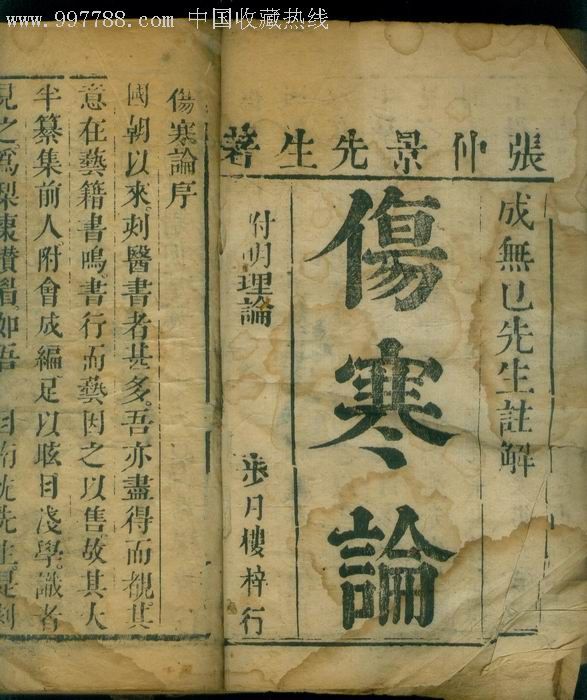 www.997788.com 中国收藏热线
張仲景先生著
成無已先生註解
傷寒論
附明理論
步月樓梓行
傷寒論序
國朝以來刺醫書者甚多吾亦盡得而覩其
意在藝籍書鳴書行而藝因之以售故其大
半纂集前人附會成編足以眩目淺學識者
見之為梨棗 如吾 目南沈先生是刺